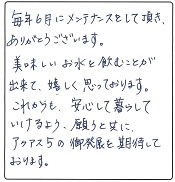 毎年6月にメンテナンスをして頂き、
ありがとうございます。
美味しいお水を飲むことが
出来て、嬉しく思っております。
これからも、安心して暮らして
いけるよう、願うと共に、
アクアス5の御発展を期待して
おります。